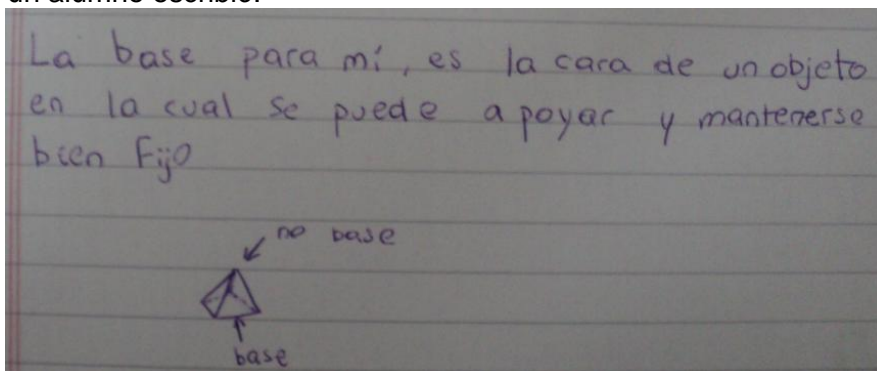 un alumno escribió:
La base para mí, es la cara de un objeto
en la cual se puede apoyar y mantenerse
bien Fijo
no base
base